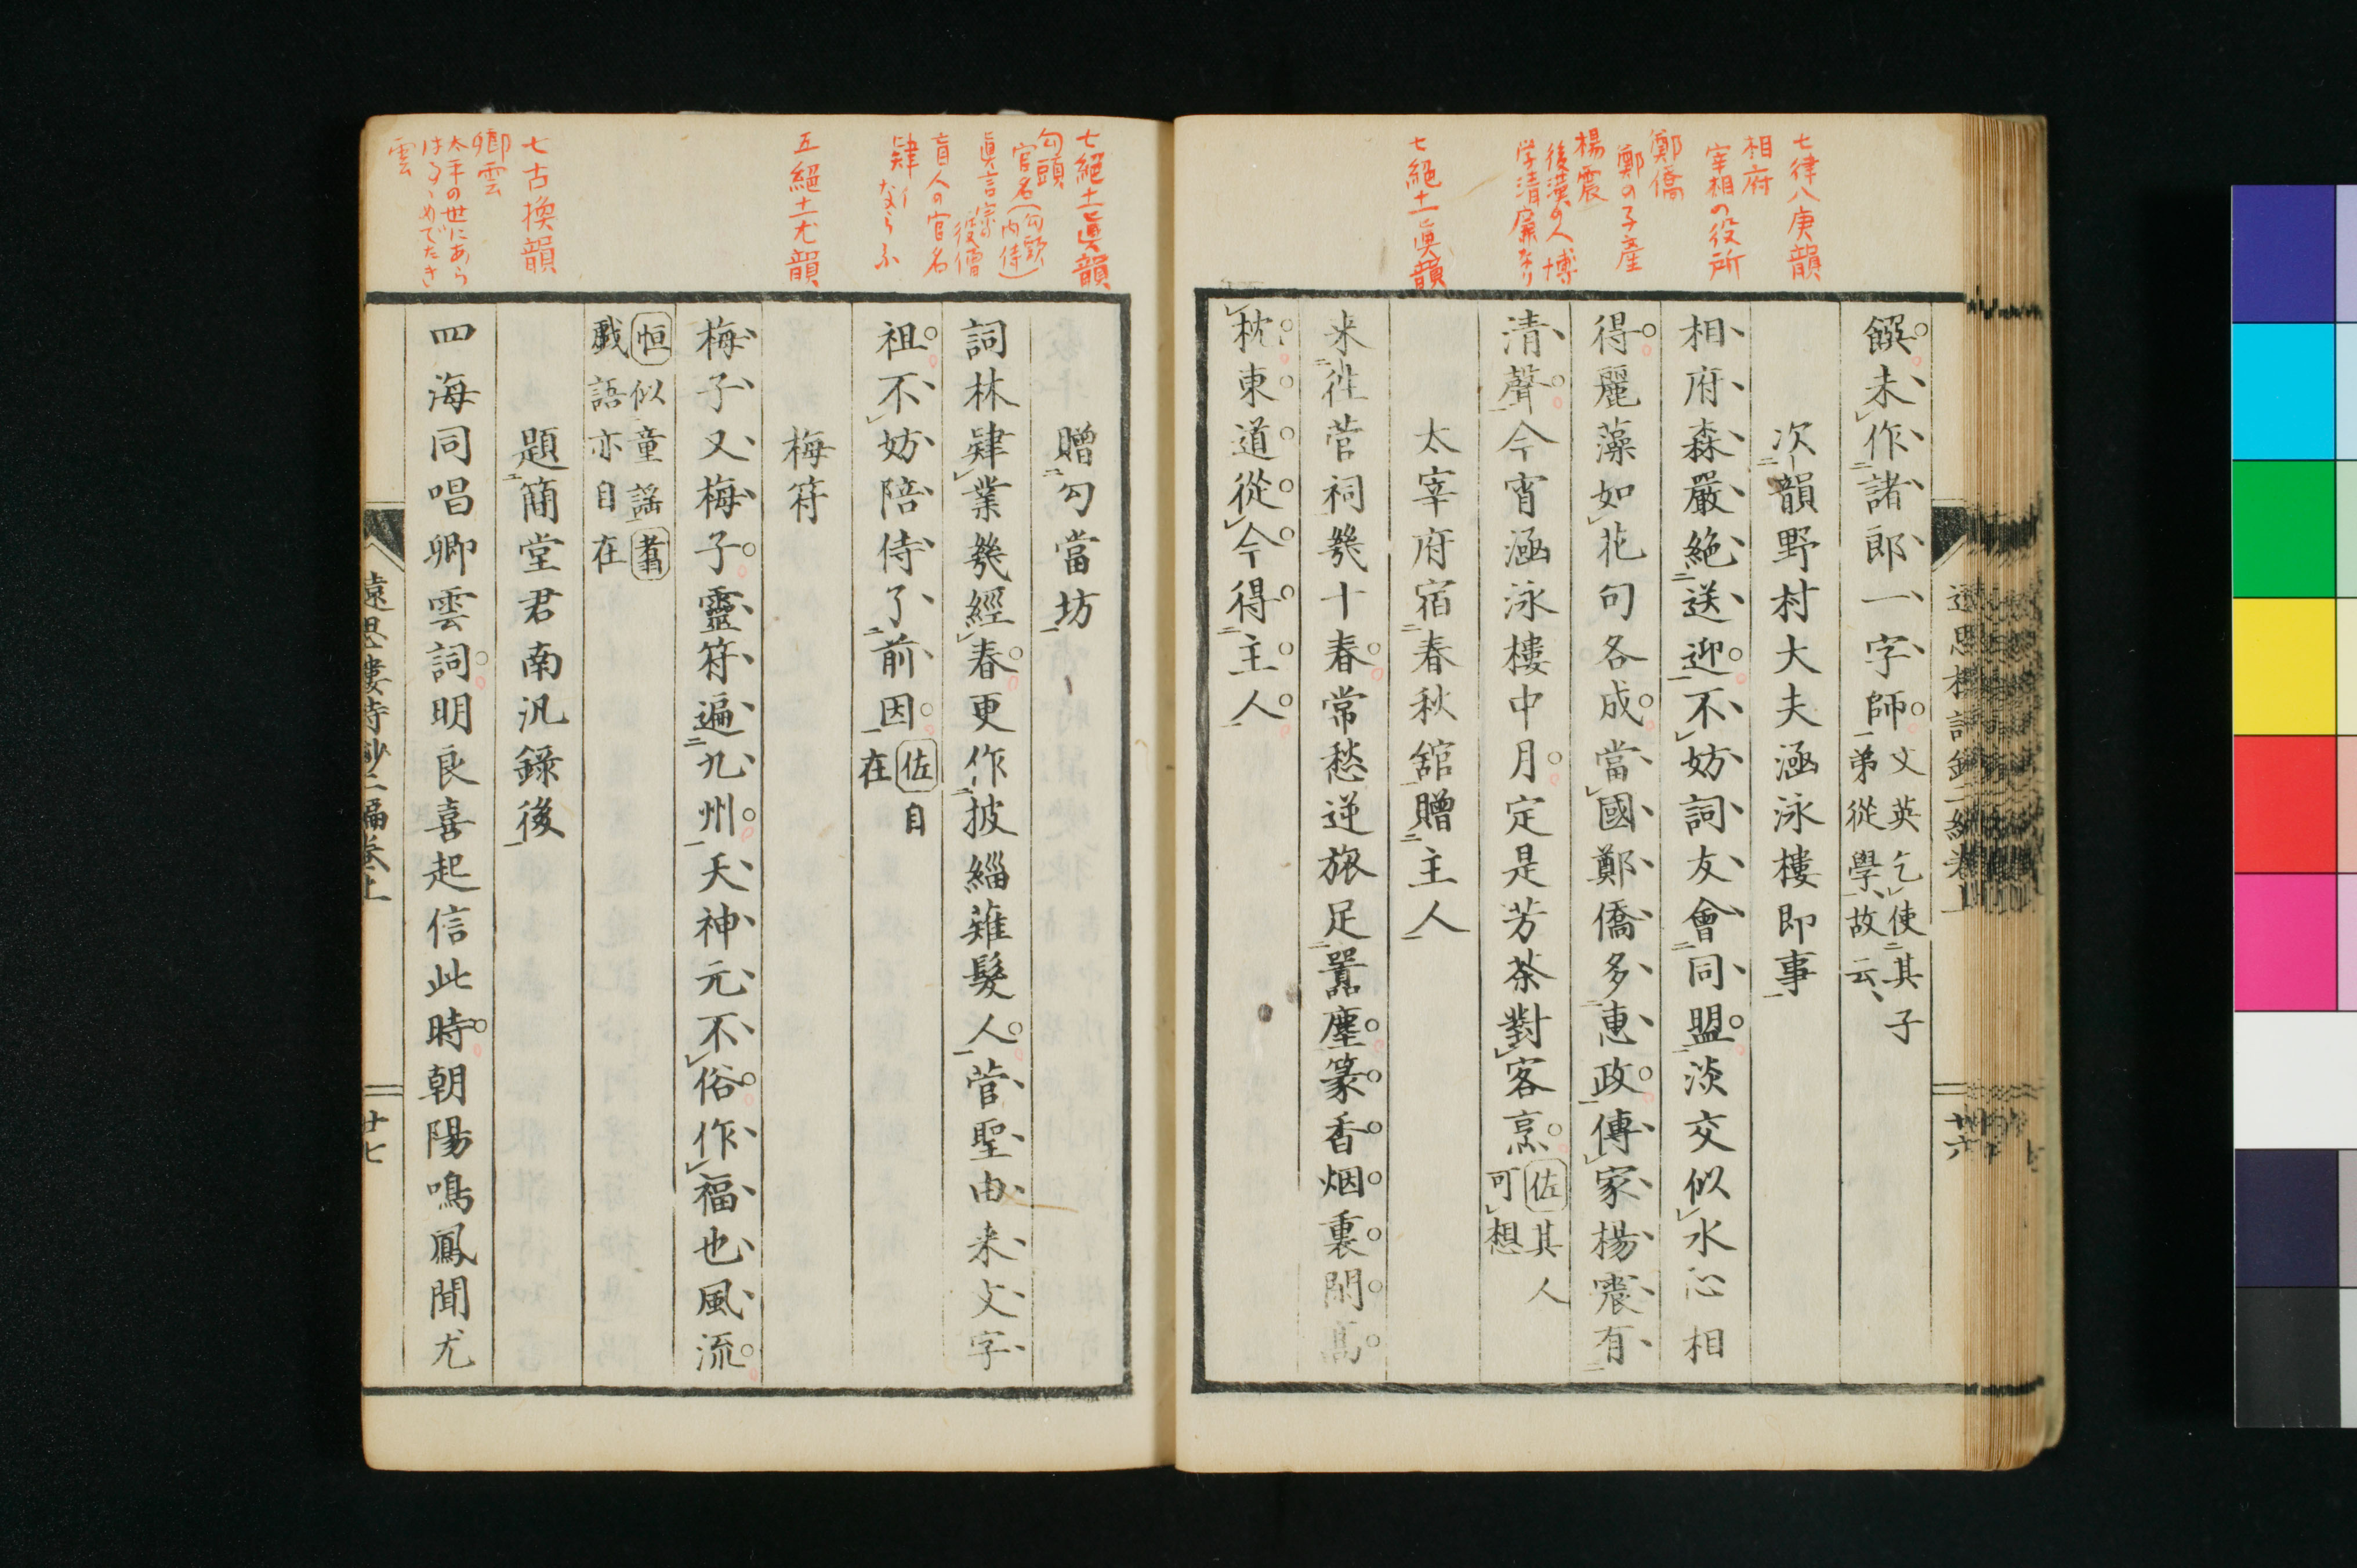 七律八庚韻
相府
宰相の役所
鄭僑
鄭の子産
楊震
後漢の人 博
学清廉なり
七絕十一眞韻
饌未作諸郎一字師
文英乞使其子
弟從學故云
次韻野村大夫涵泳樓即事
相府森嚴絶送迎不妨詞友會同盟淡交似水心相
得麗藻如花句各成當國鄭僑多惠政傳家楊震有
清聲今宵涵泳樓中月定是芳茶對客烹
佐其人
可想
太宰府宿春秋舘贈主人
来往菅祠幾十春常愁逆旅足囂塵篆香烟裏閑高
枕東道從今得主人
廿六
七絕十一眞韻
勾頭
官名(勾頭
内侍)
眞言宗の役僧
盲人の官名
肄イ
ならふ
五絕十一尤韻
七古換韻
卿雲
太平の世にあら
はるゝめでたき
雲
贈勾當坊
詞林肄業幾經春更作披緇薙髮人菅聖由来文字
祖不妨陪侍了前因
佐自
在
梅符
梅子又梅子靈符遍九州天神元不俗作福也風流
恒似童謡蓊
戲語亦自在
題簡堂君南汎錄後
四海同唱卿雲詞明良喜起信此時朝陽鳴鳳聞尤
遠思樓詩鈔二編卷上
廿七